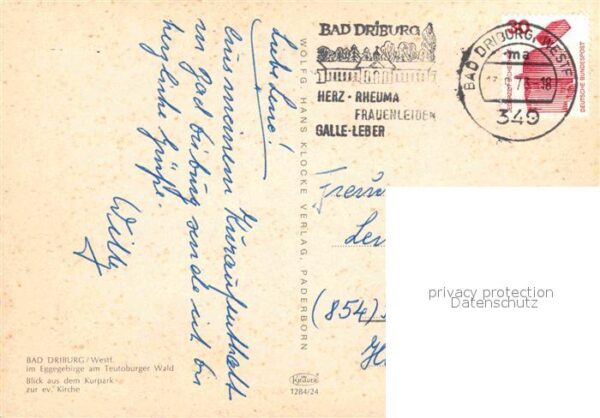 Liebe Lene!
Aus meinem Kuraufenthalt
in Bad Driburg sende ich dir
herzliche Grüße.
Willy
BAD DRIBURG/Westf.
im Eggegebirge am Teutoburger Wald
Blick aus dem Kurpark
zur ev. Kirche
WOLFG. HANS KLOCKE VERLAG, PADERBORN
Krüger
1284/24
BAD DRIBURG
HERZ - RHEUMA
FRAUENLEIDEN
GALLE-LEBER
BAD DRIBURG, WESTF
ma
18
349
30
DEUTSCHE BUNDESPOST
(854)
privacy protection
Datenschutz